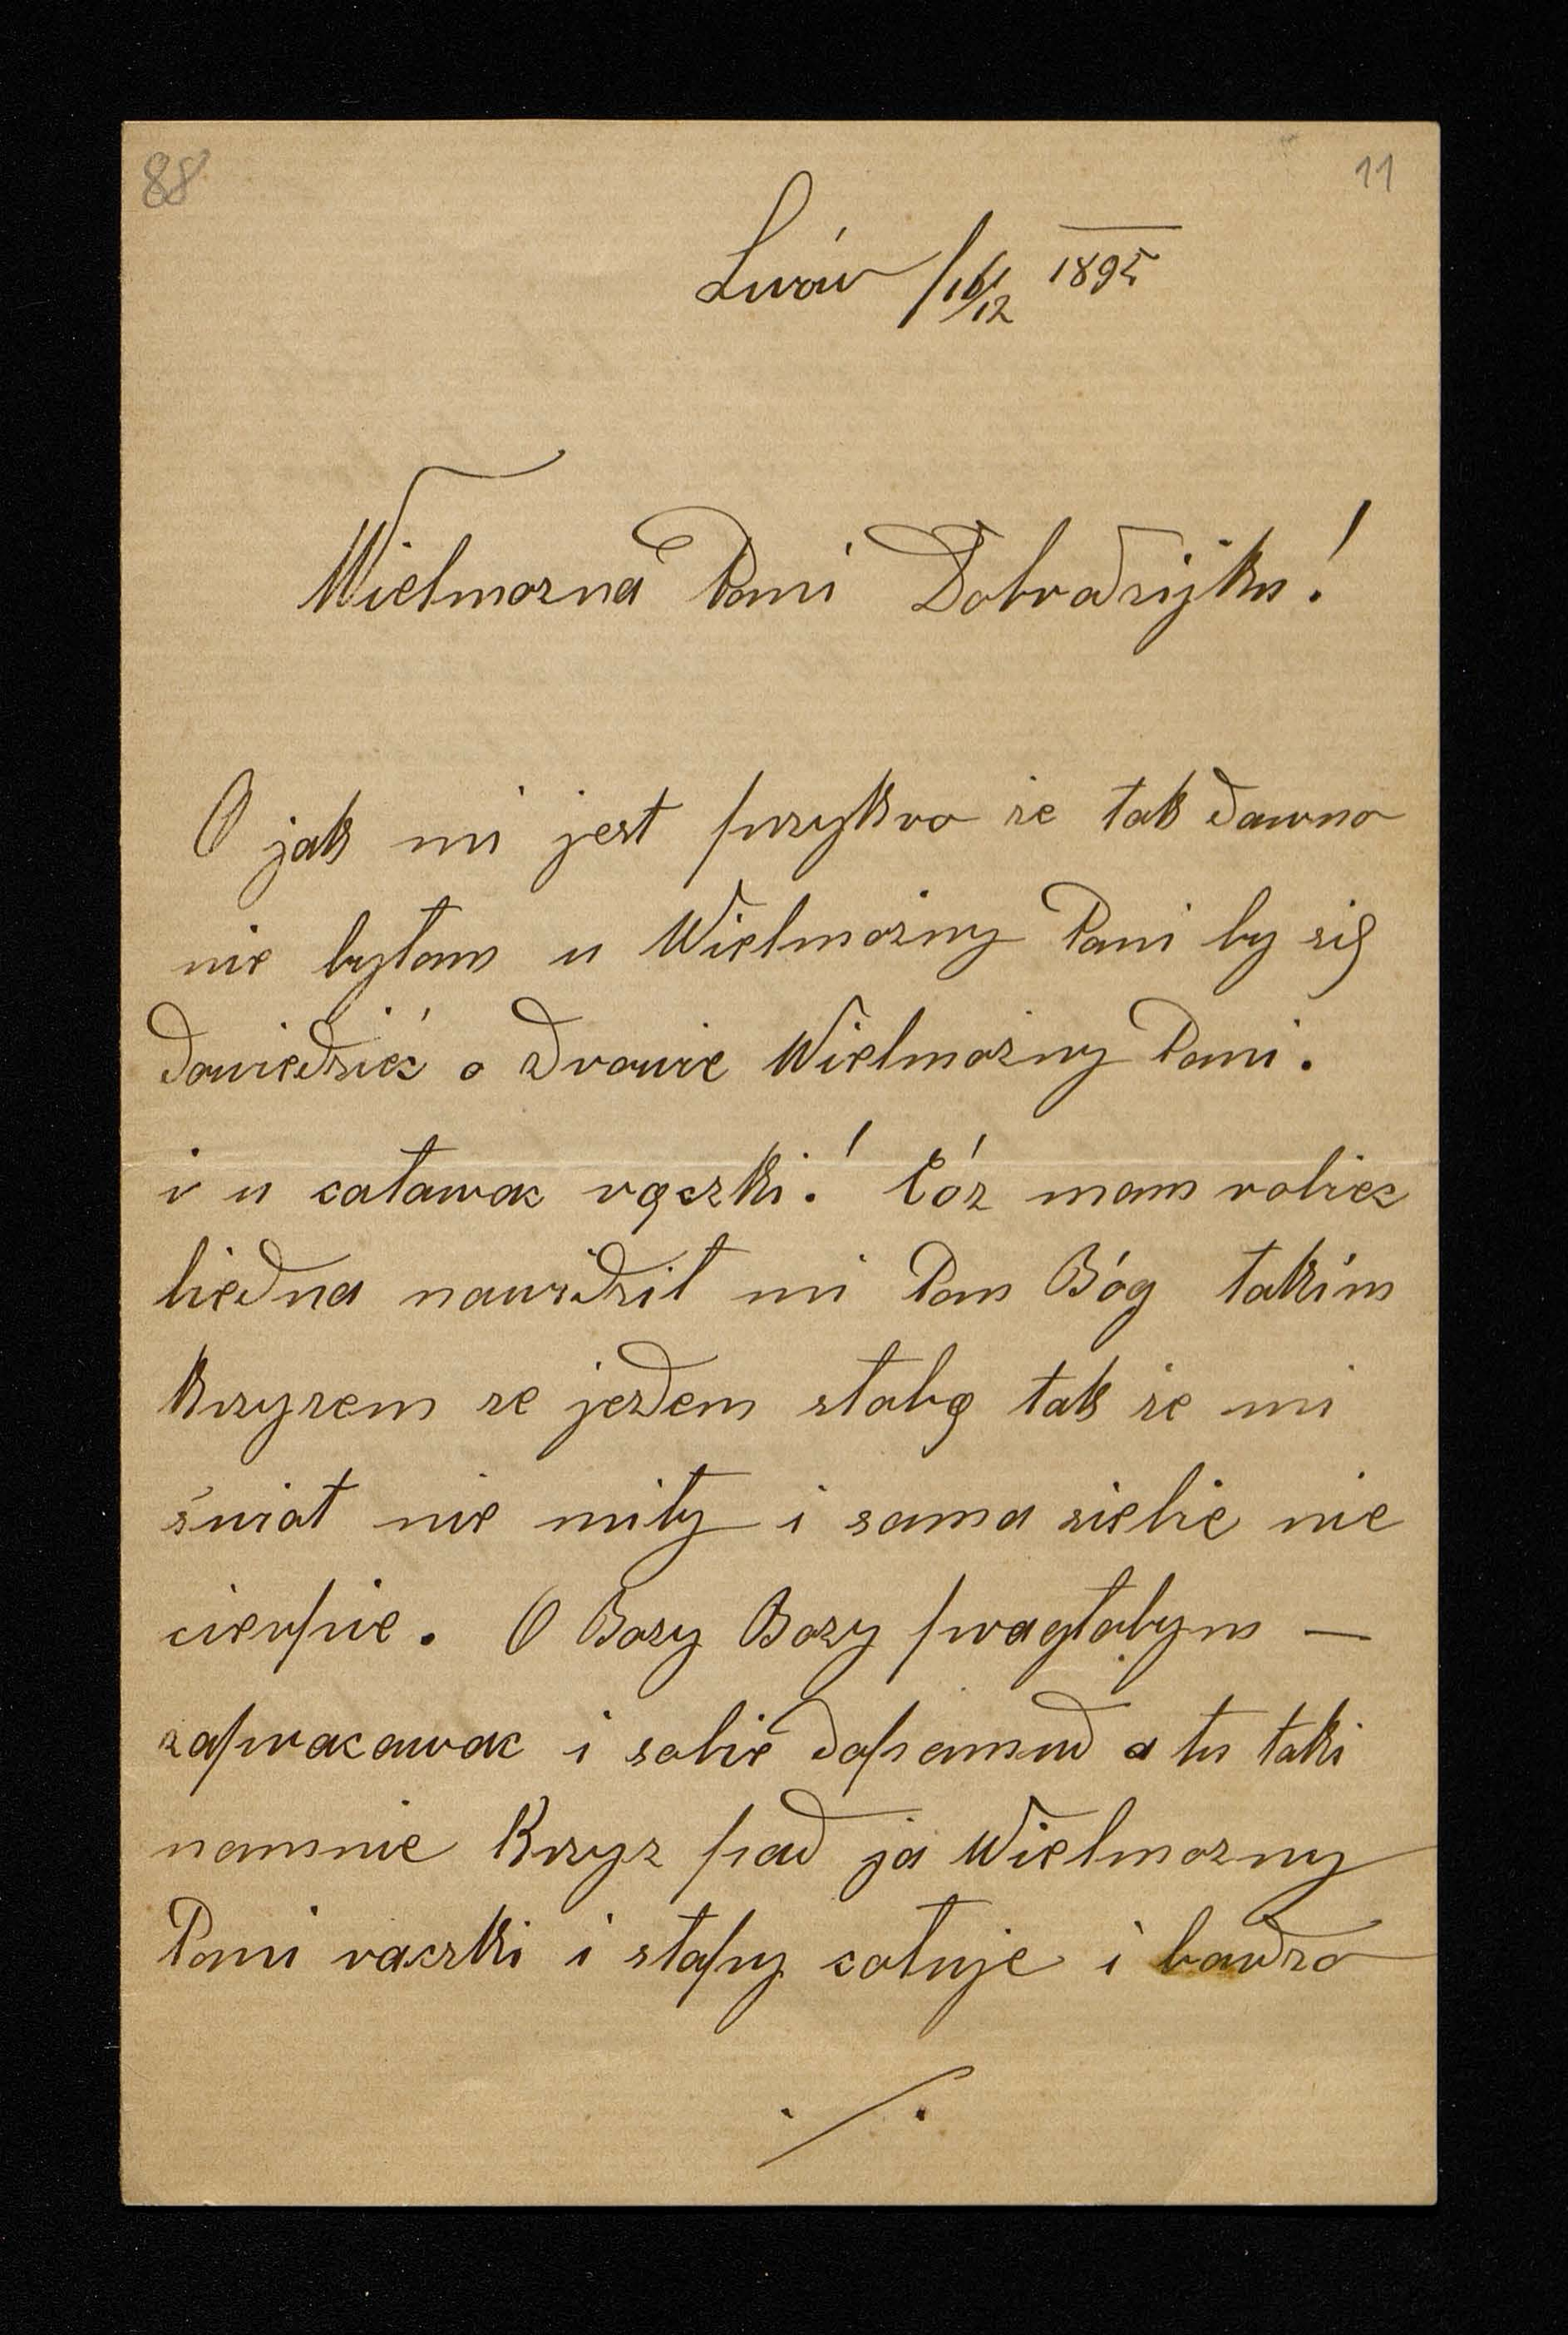 88 11
Lwów /16/12 1895
Wielmozna Pani Dobradzijko!
O jak mi jest przykro że tak dawno
nie byłam u Wielmożny Pani by się
dowiedzieć o zdrowie Wielmożny Pani.
i u caławac rączki! Cóz mam robiec
biedna nawidził mi Pan Bóg takim
krzyzem ze jezdem słabą tak że mi
świat nie miły i sama siebie nie
cierpie. O Bozy Bozy pragłabym —
zapracawac i sobie dopamud a tu taki
namnie Krzyz pad ja Wielmozny
Pani raczki i stapy całuje i bardzo
./.